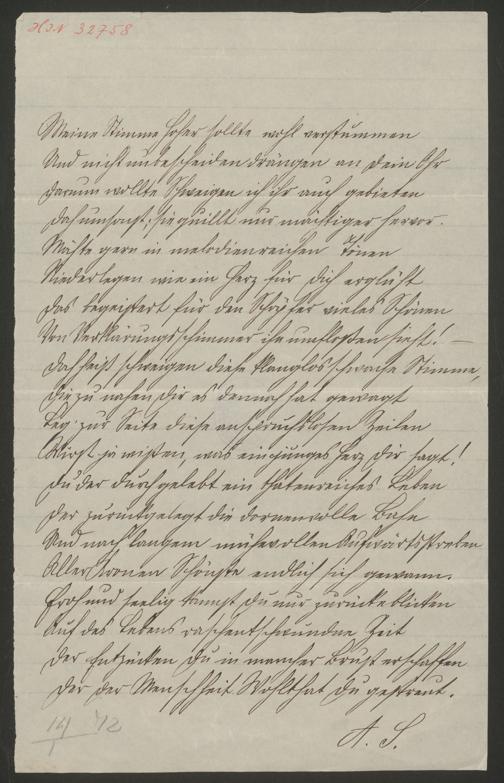 H.I.N 32758
Meine Stimme Hoher sollte wohl verstummen
Und nicht unbescheiden drängen an Dein Ohr
Darum wollte Schweigen ich ihr auch gebieten
Doch umsonst; sie quillt nur mächtiger hervor.
Möchte gern in melodienreichen Tönen
Niederlegen wie ein Herz für Dich erglüht
Das begeistert für den Schöpfer vieles Schönen
Von Verklärungsschimmer ihn umfloßen sieht! —
Doch heiß schweigen diese klanglos schwache Stimme,
Die zu nahen Dir es dennoch hat gewagt
Leg' zur Seite diese anspruchslosen Zeilen
Wirst ja wißen, was ein junges Herz Dir sagt!
Du der durchgelebt ein thatenreiches Leben
Der zurückgelegt die dornenvolle Bahn
Und nach langem mühevollen Aufwärtsstreben
Aller Kronen Schönste endlich sich gewann.
Froh und seelig kannst Du nur zurücke blicken
Auf des Lebens raschentschwundne Zeit
Der Entzücken Du in mancher Brust erschaffen
Der der Menschheit Wohlthat Du gestreut.
A. S.
14/1 72